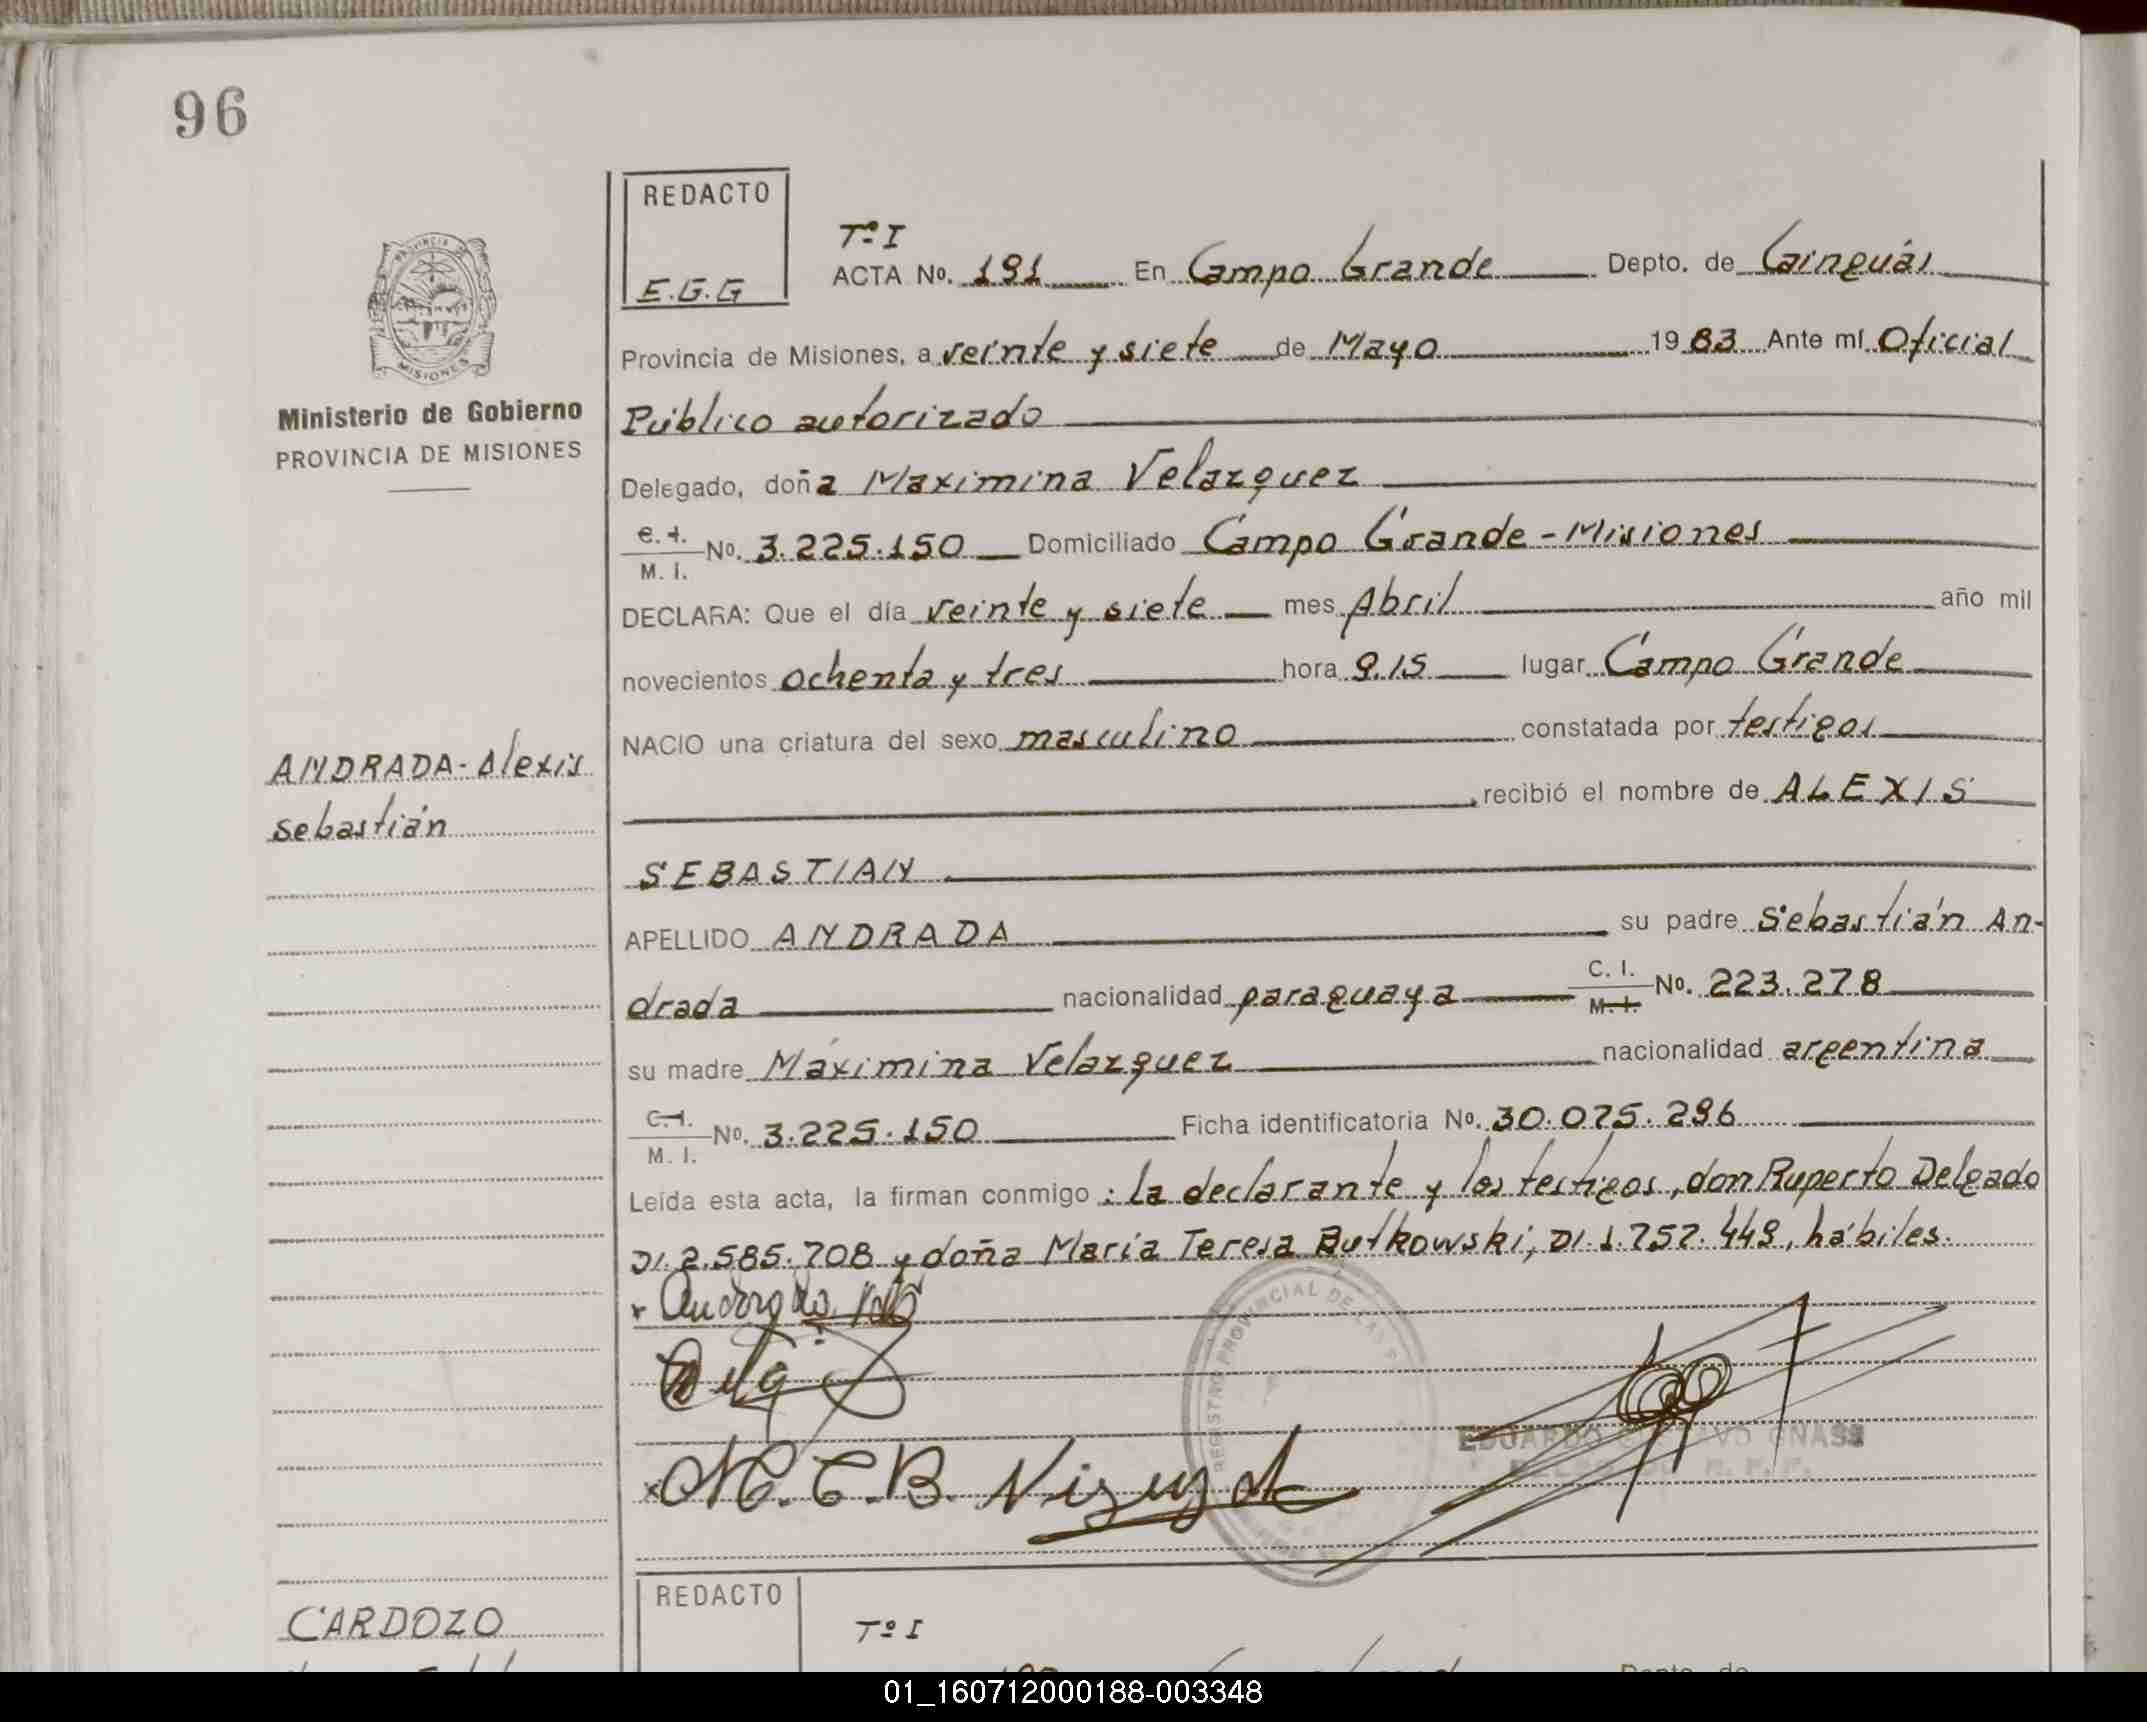 96
REDACTO
E.G.G
Tº I
ACTA No. 191 En Campo Grande Depto. de Cainguás
PROVINCIA
MISIONES
Ministerio de Gobierno
PROVINCIA DE MISIONES
Provincia de Misiones, a veinte y siete de Mayo 1983 Ante mí Oficial
Público autorizado
Delegado, doña Maximina Velazquez
C. I.
M. I. No. 3.225.150 Domiciliado Campo Grande - Misiones
DECLARA: Que el día veinte y siete mes Abril año mil
novecientos ochenta y tres hora 9.15 lugar Campo Grande
NACIO una criatura del sexo masculino constatada por testigos
ANDRADA - Alexis
Sebastián
recibió el nombre de ALEXIS
SEBASTIAN
APELLIDO ANDRADA su padre Sebastián An-
drada nacionalidad paraguaya C. I. M. I. No. 223.278
su madre Máximina Velazquez nacionalidad argentina
C. I.
M. I. No. 3.225.150 Ficha identificatoria No. 30.075.296
Leída esta acta, la firman conmigo: la declarante y los testigos, don Ruperto Delgado
DI. 2.585.708 y doña María Teresa Butkowski, DI. 1.757.449, hábiles.
REGISTRO PROVINCIAL DE LAS P
EDUARDO GUSTAVO GNASS
CARDOZO
REDACTO
Tº I
01_160712000188-003348